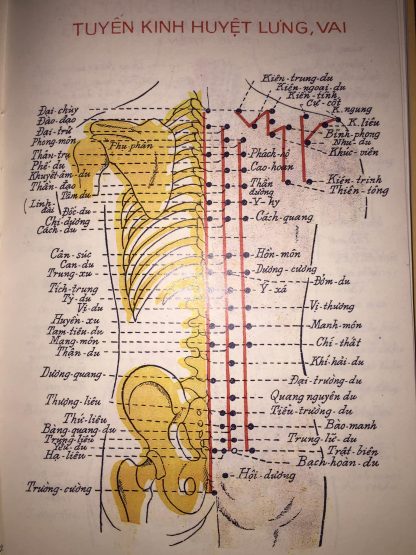 TUYẾN KINH HUYỆT LƯNG, VAI
Kiên-trung-du
Kiên-ngoại-du
Kiên-tỉnh
Cự-cốt
K.ngung
K.liêu
Bỉnh-phong
Nhu-du
Khúc-viên
Kiên-trinh
Thiên-tông
Đại-chùy
Đào-đạo
Đại-trữ
Phong-môn
Phụ phân
Thân-trụ
Phế-du
Khuyết-âm-du
Thần-đạo
Tâm-du
Linh-đài
Đốc-du
Chí-dương
Cách-du
Phách-hộ
Cao-hoan
Thần đường
Y-hy
Cách-quang
Cân-súc
Can-du
Trung-xu
Tích-trung
Tỳ-du
Vị-du
Huyền-xu
Tam-tiêu-du
Mạng-môn
Thận-du
Dương-quang
Thượng-liêu
Thứ-liêu
Bàng-quang-du
Trung-liêu
Yêu-du
Hạ-liêu
Trường-cường
Hồn-môn
Dương-cương
Đởm-du
Y-xá
Vị-thương
Manh-môn
Chí-thất
Khí-hải-du
Đại-trường-du
Quang nguyên du
Tiểu-trường-du
Bào-manh
Trung-lữ-du
Trật-biên
Bạch-hoàn-du
Hội-dương